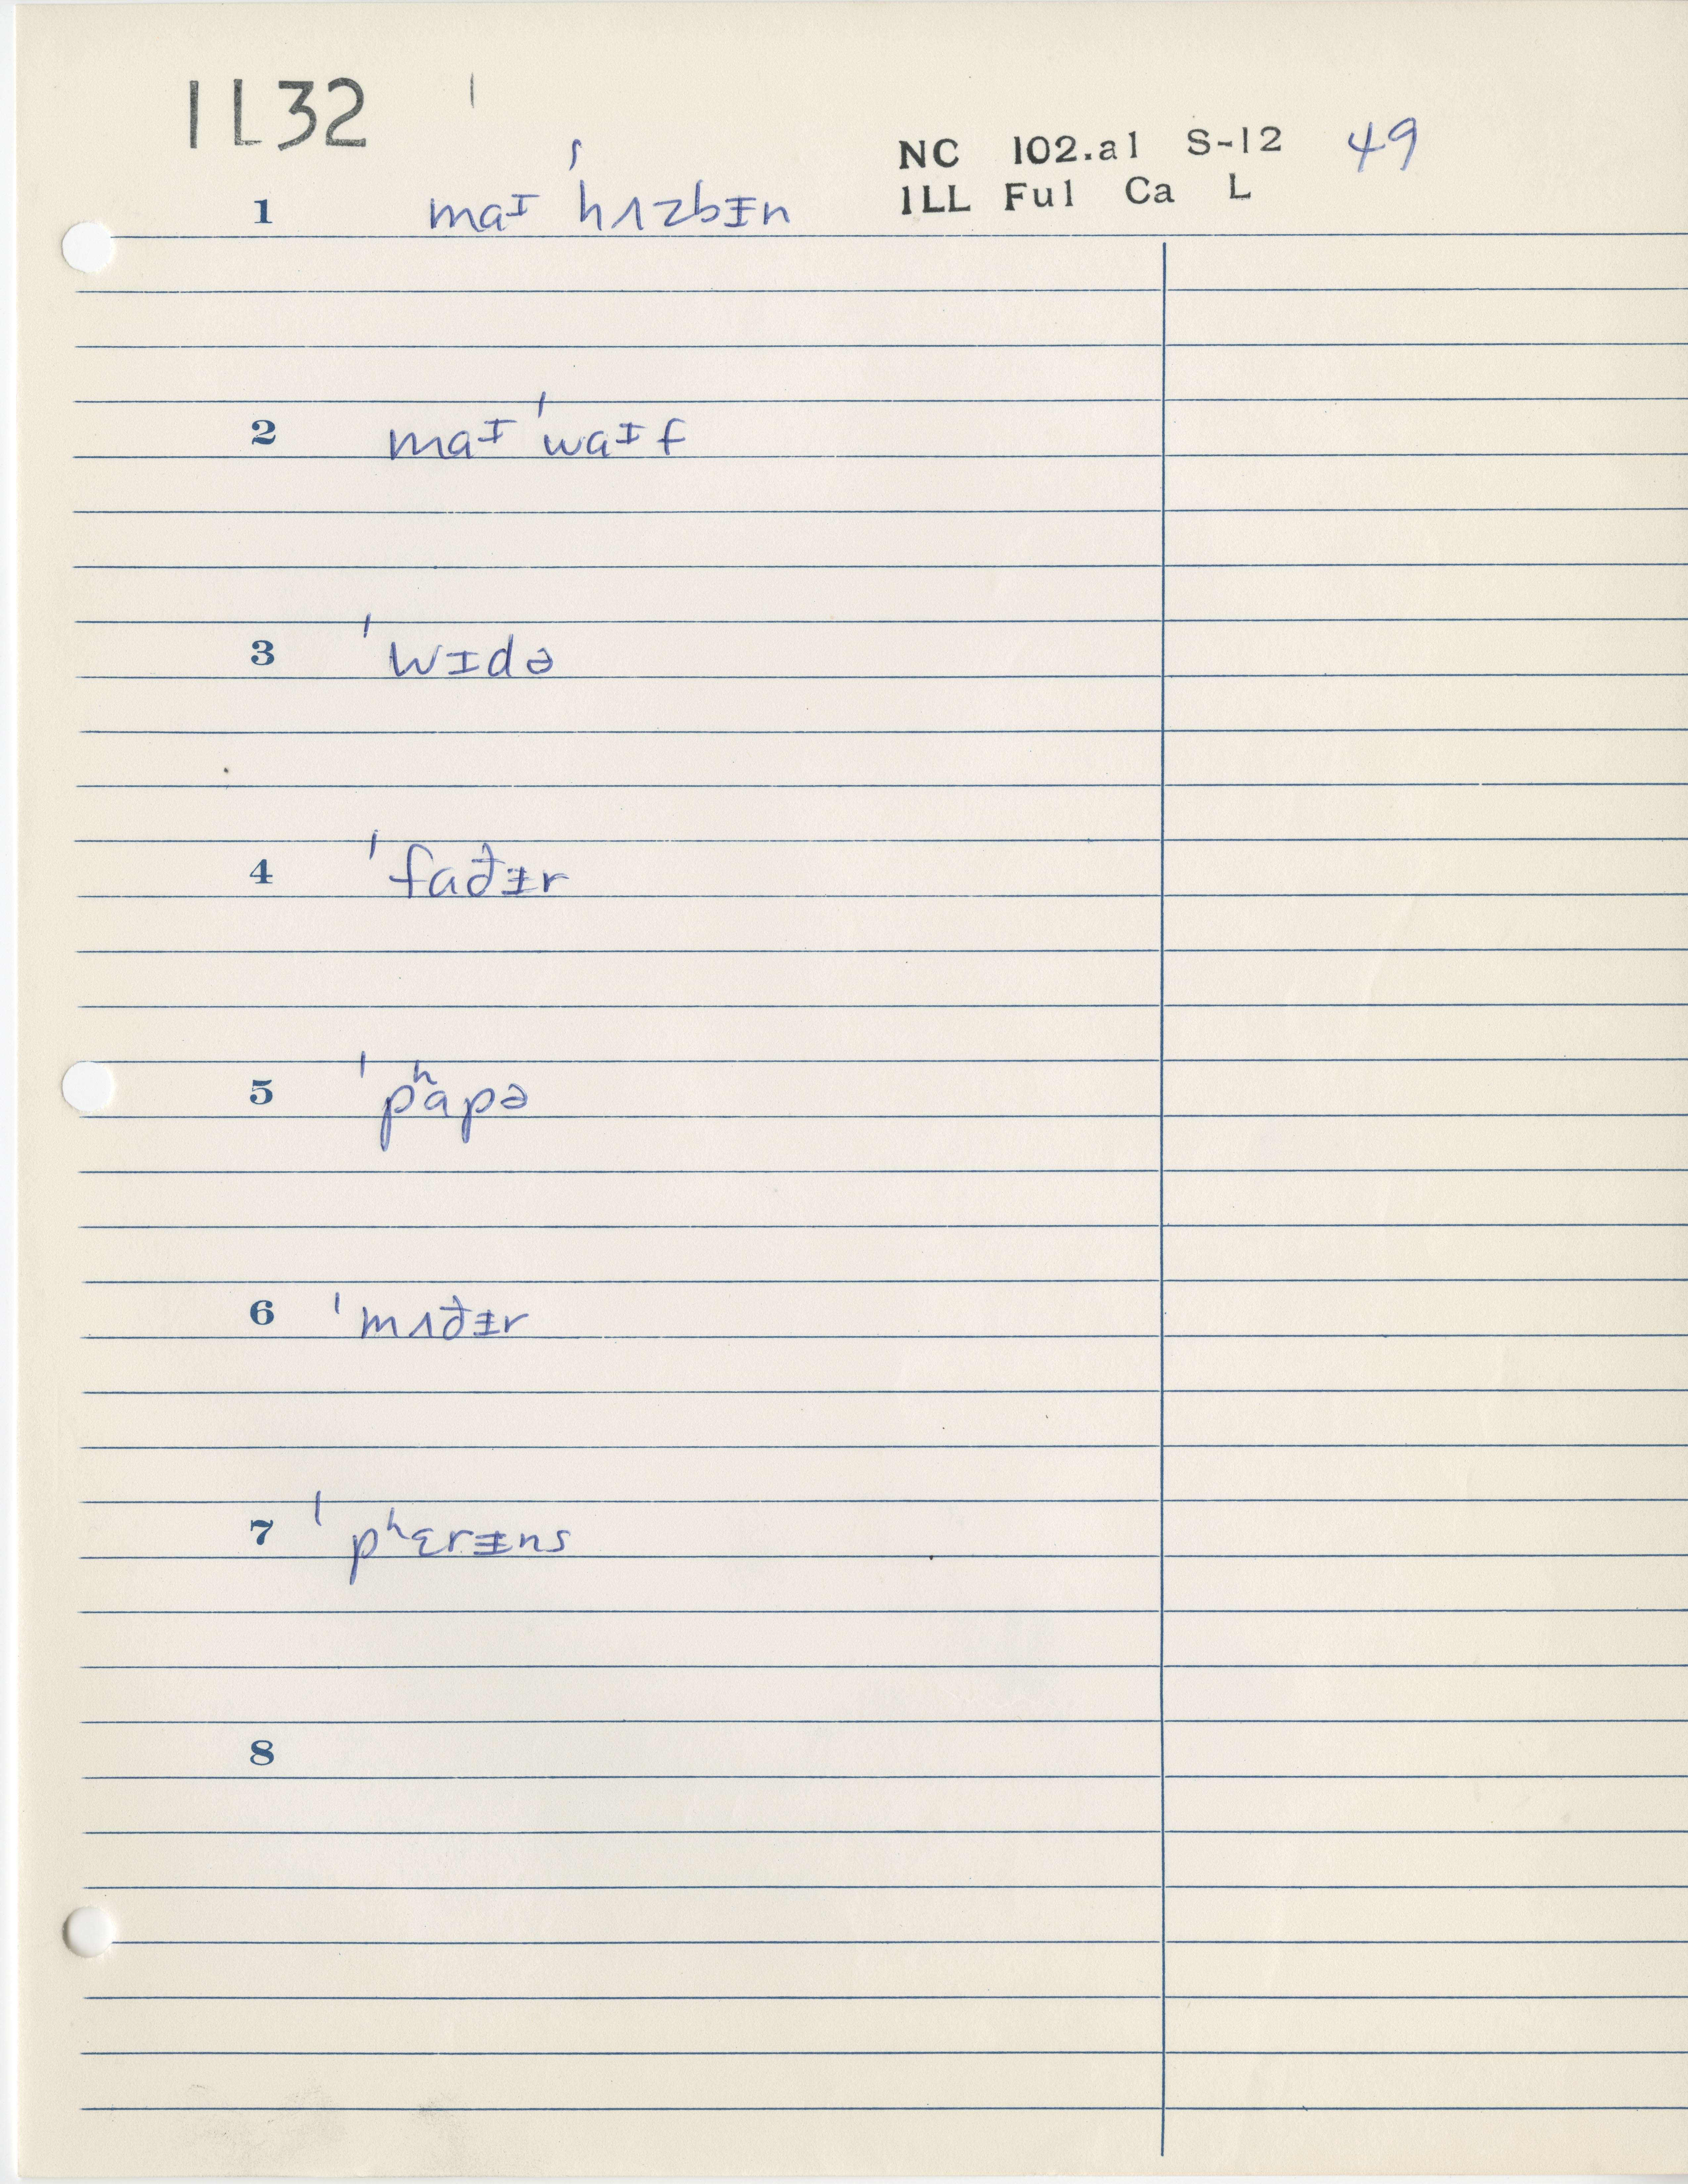 1L32 |
NC 102.a1 S-12 49
1LL Ful Ca L
1 maɪ ˈhʌzbᵻn
2 maɪ ˈwaɪf
3 ˈwɪdə
4 ˈfaðᵻr
5 ˈpʰapə
6 ˈmʌðᵻr
7 ˈpʰɛrᵻns
8